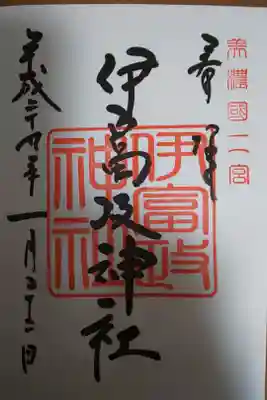 美濃國二宮
奉拝
伊富岐神社
伊富岐
神社
平成二十九年一月二十二日